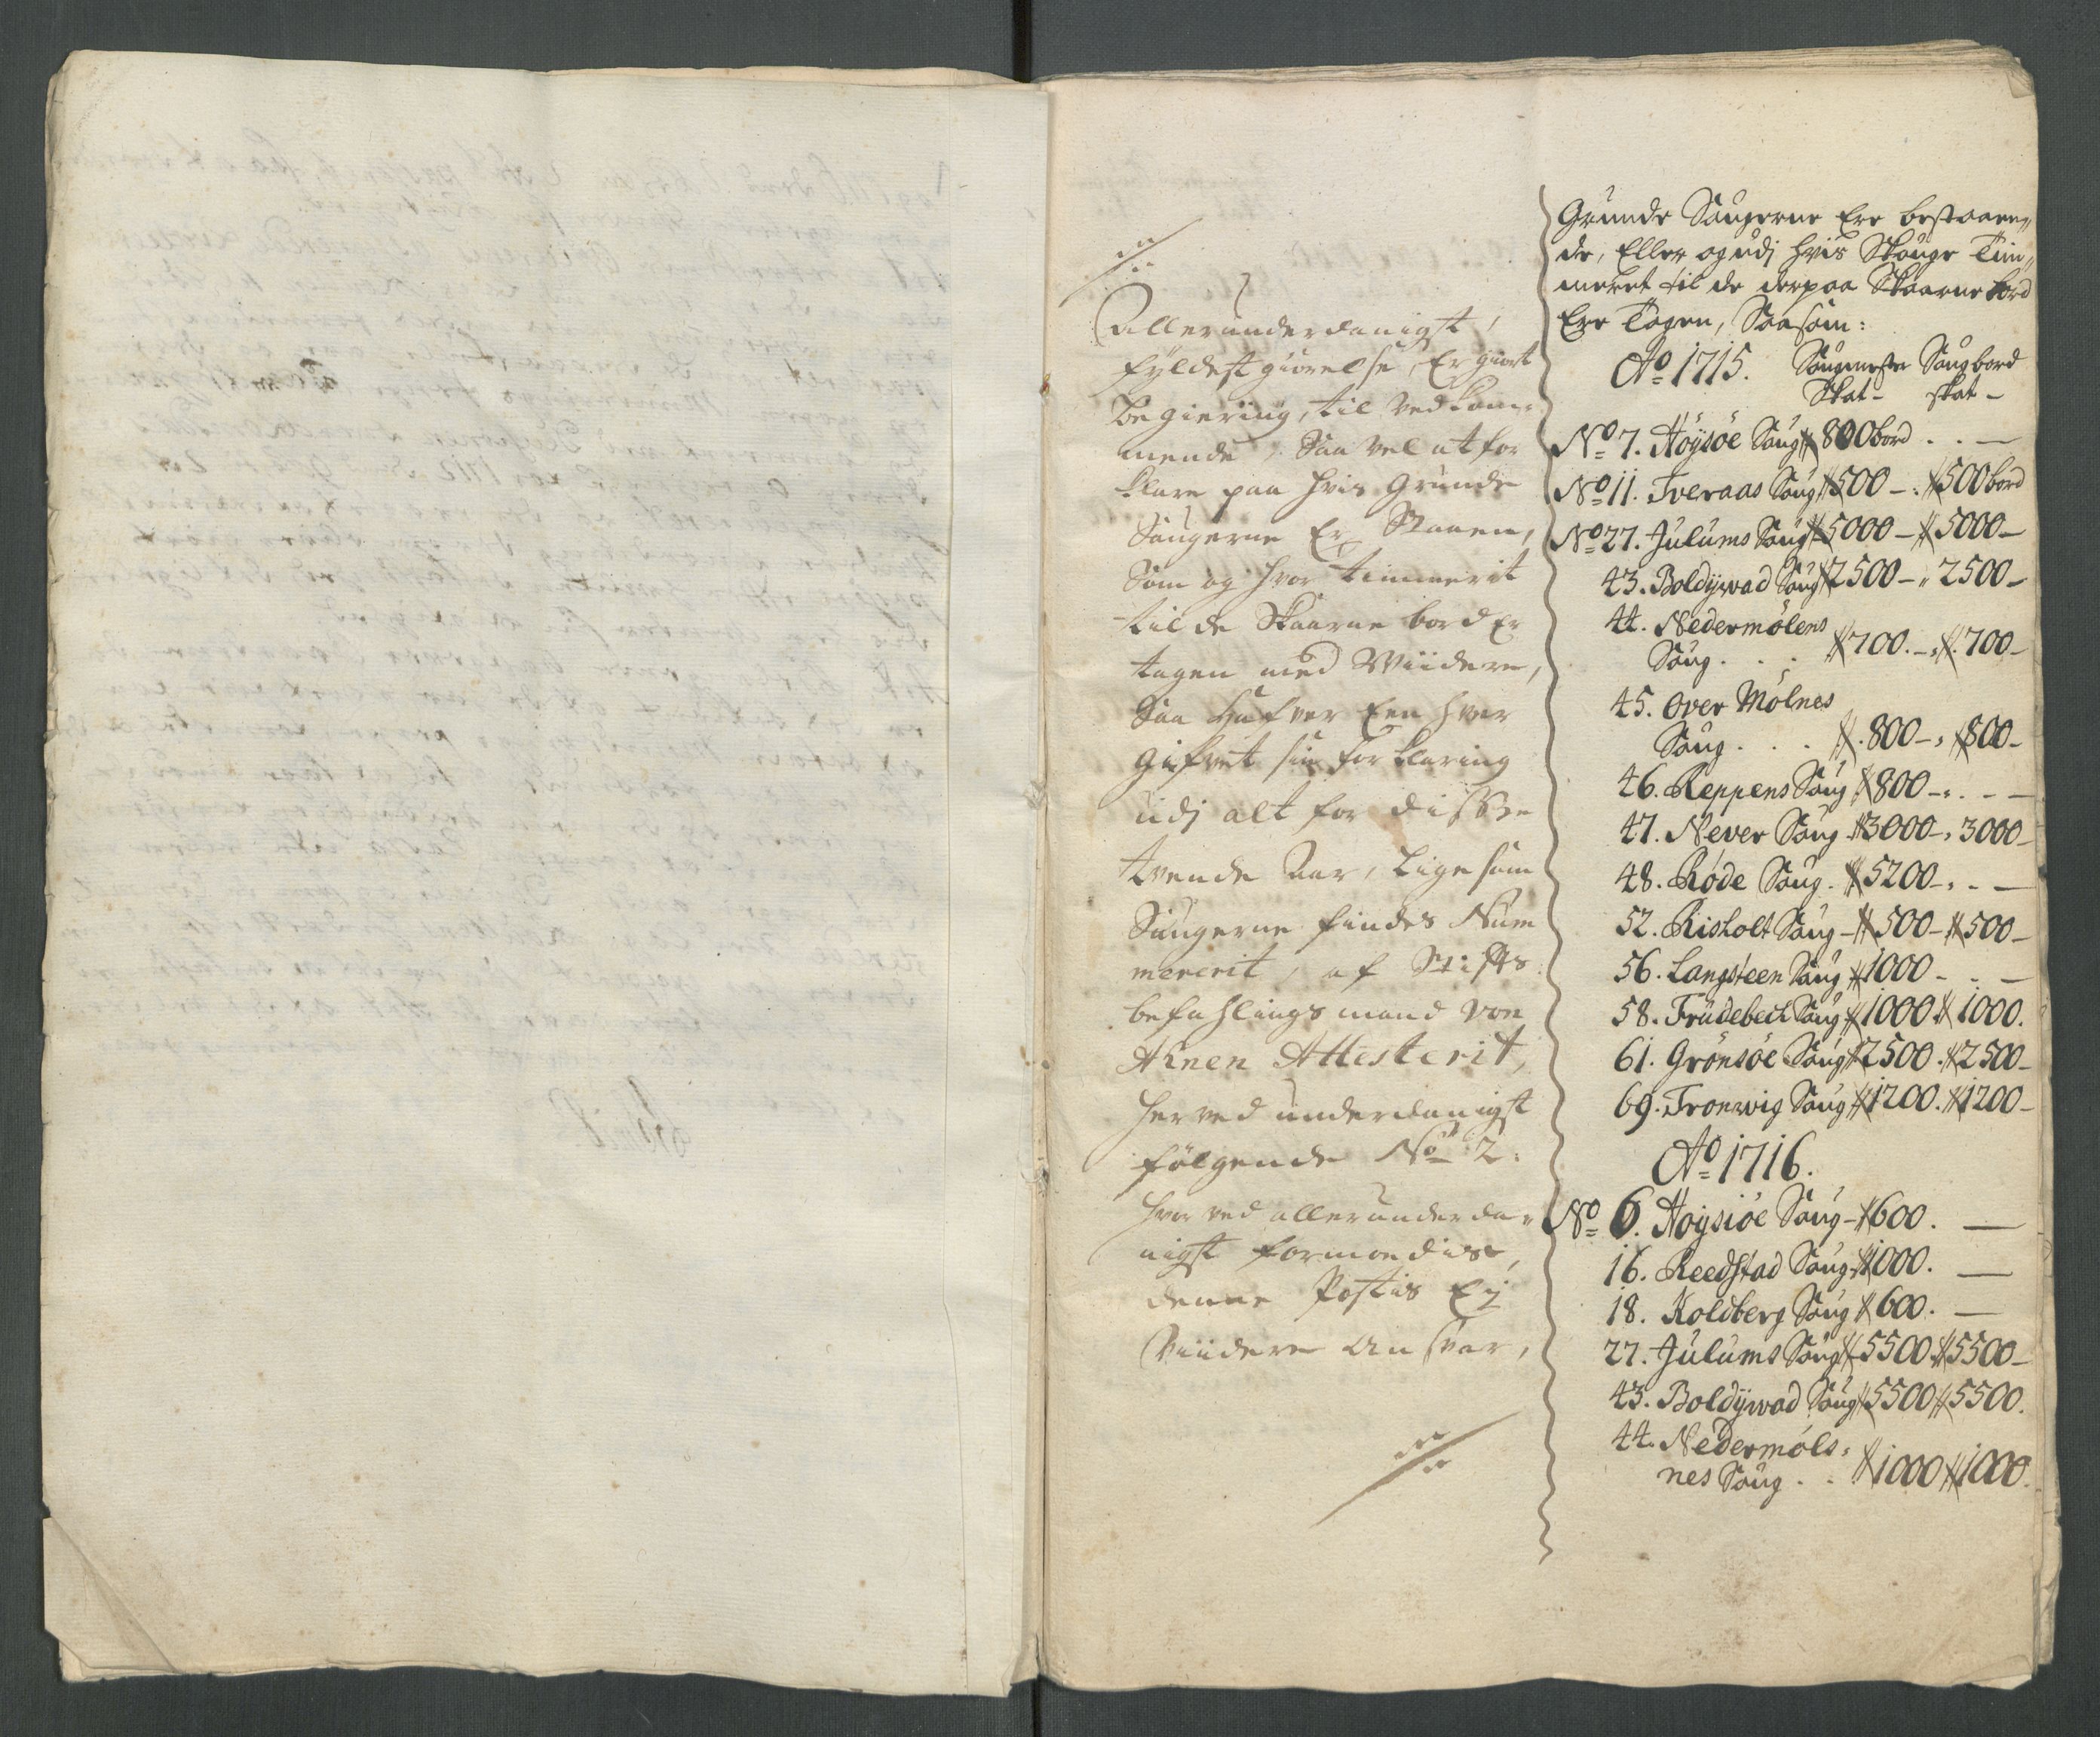 Allerunderdanigst,
fyldestgiørelse, Er giort
begiering, til Vedkom-
mende, Saa vel at for
klare paa hvis Grunde
Saugerne Er Staaen,
Som og hvor timmerit
til de Skaarne bord Er
tagen med Wiidere,
Saa hafver Een hver
gifvet sin forklaring
udj alt for disse
tvende Aar, ligesom
Saugerne findes Num
mererit, af Stifts
befahlings mand von
Ahnen Attesterit,
herved underdanigst
følgende No 2.
hvor ved allerunderda-
nigst formoedis,
denne Postis Ej
Viidere Ansvar,
Grunde Saugerne Ere bestaaen„
de, Eller og udj hvis Skouge Tim„
meret til de derpaa Skaarne bord
Ere Tagen, Saasom:
Ao 1715. Saugmester Saugbord
Skat - skat -
No 7. Höysöe Saug 800 bord . . —
No 11. Tveraas Saug 500 - : 500 bord
No 27. Julums Saug 5000 - 5000 -
43. Boldywad Saug 2500 - „ 2500 -
44. Nedermölens
Saug . . . 700. - , 700 -
45. Over Mölnes
Saug . . . 800 - , 800 -
46. Reppens Saug 800 - . . - —
47. Never Saug 3000 - , 3000 -
48. Röde Saug . 5200 - , - —
52. Risholt Saug - 500 - 500 -
56. Langsteen Saug 1000 - . —
58. Frudebech Saug 1000. 1000.
61. Grönsöe Saug 2500. 2500 -
69. Tronwig Saug 1200. 1200 -
Ao 1716.
No 6. Hoysiöe Saug - 600. —
16. Reedstad Saug 1000. —
18. Koldberg Saug 600. —
27. Julums Saug 5500. 5500 -
43. Boldywad Saug 5500 5500.
44. Nedermöls-
nes Saug . . 1000 1000.